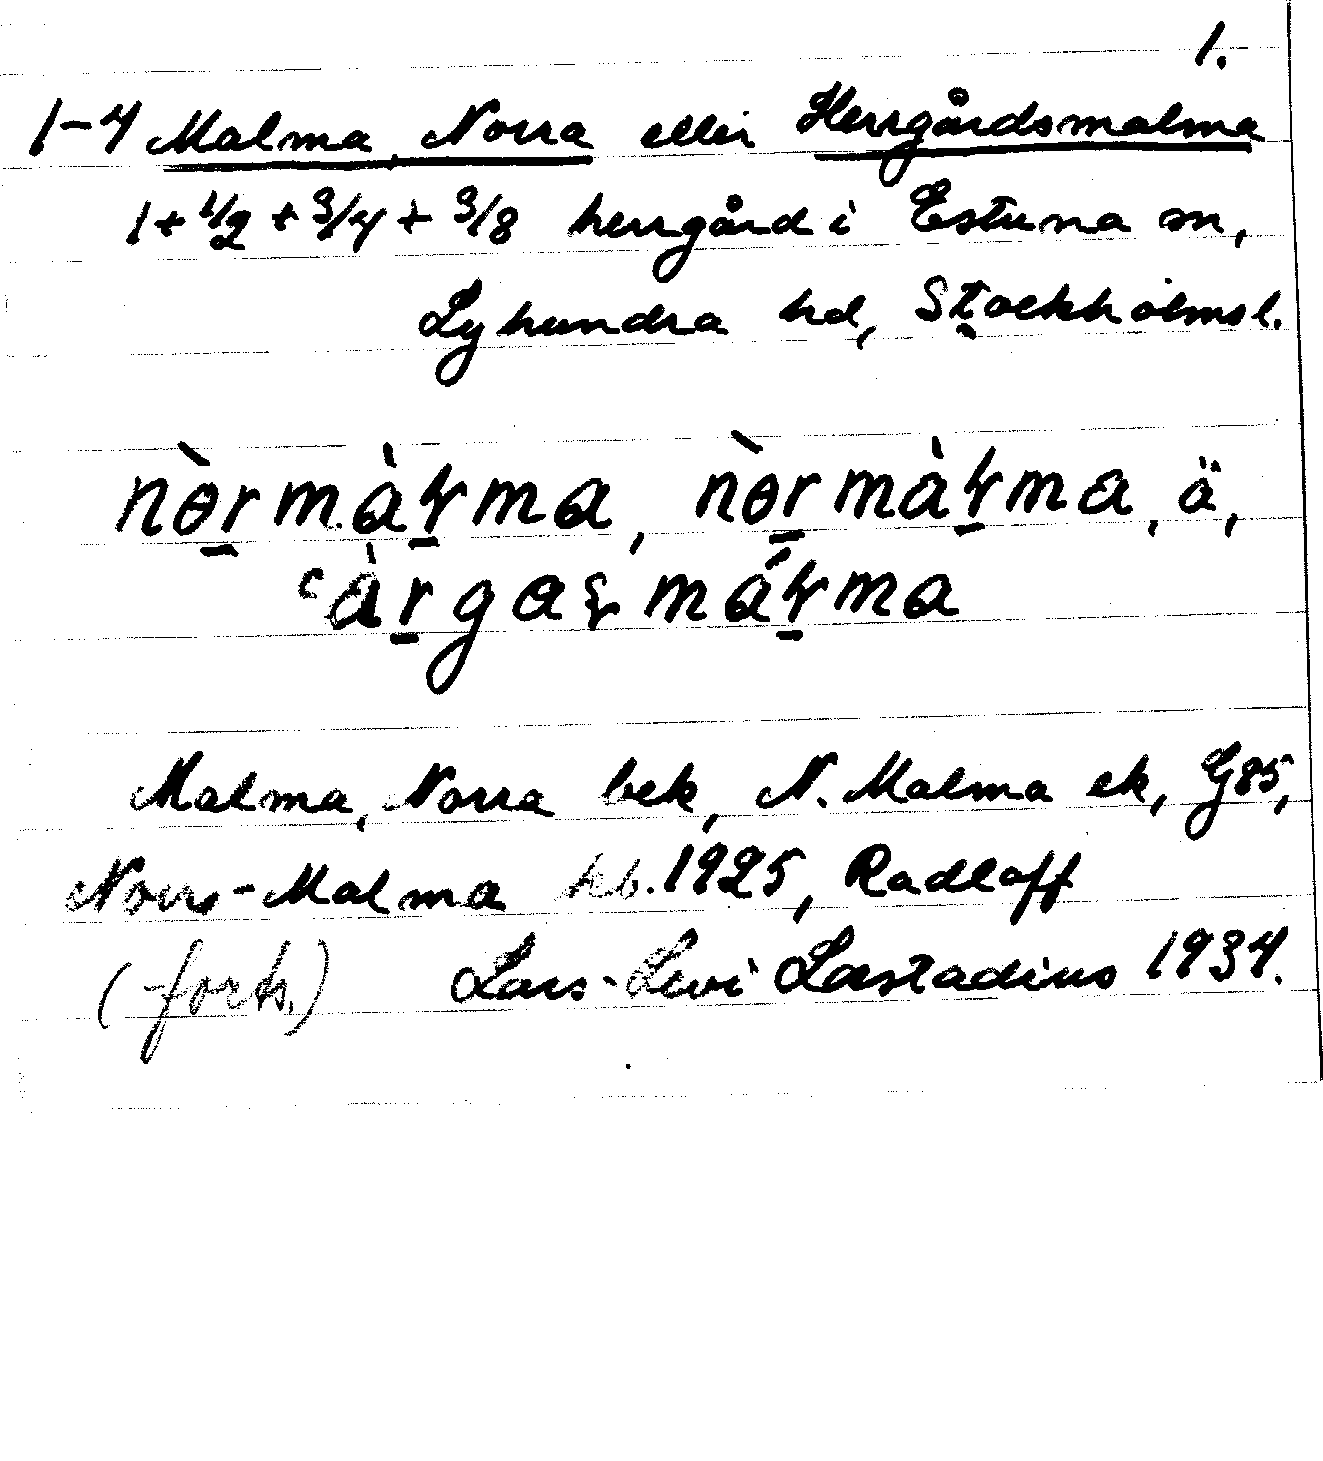 1.
1-4 Malma, Norra eller Herrgårdsmalma
1+1/2+3/4+3/8 herrgård i Estuna sn,
Lyhundra hd, Stockholms l.
Malma, Norra bek, N. Malma ek, G85,
Norr-Malma hb. 1925, Radloff
(forts.) Lars-Levi Læstadius 1934.